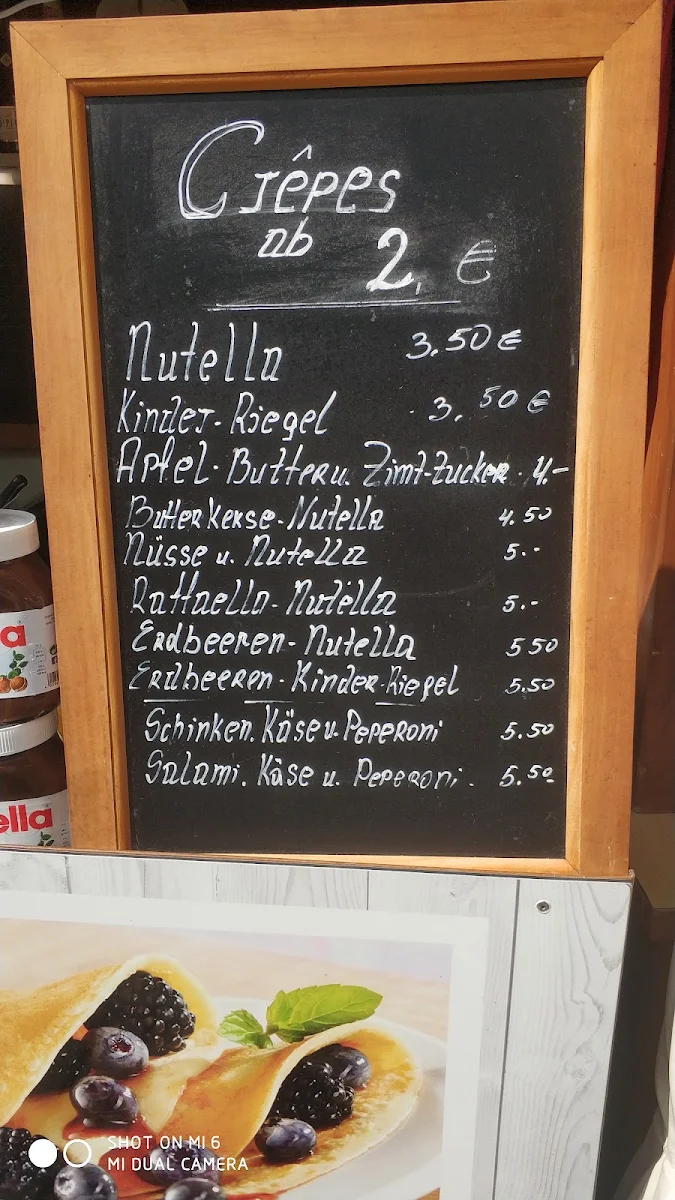 Crêpes
ab 2,€
Nutella 3.50€
Kinder-Riegel 3.50€
Apfel-Butter u. Zimt-Zucker-4.-
Butterkekse-Nutella 4.50
Nüsse u. Nutella 5.-
Raffaello-Nutella 5.-
Erdbeeren-Nutella 550
Erdbeeren-Kinder-Riegel 5.50
Schinken, Käse u. Peperoni 5.50
Salami, Käse u. Peperoni. 5.50
a
ella
SHOT ON MI 6
MI DUAL CAMERA